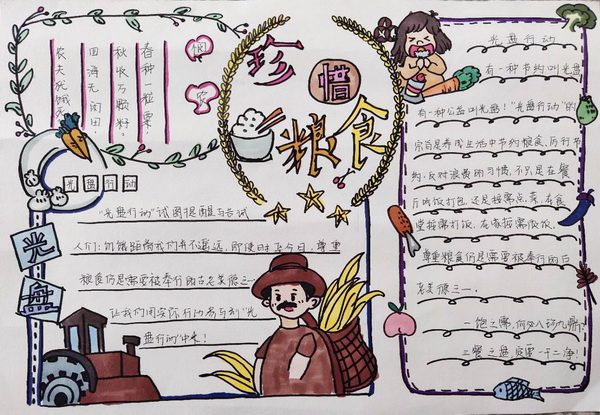 悯农
春种一粒粟
秋收万颗籽
四海无闲田
农夫犹饿死
珍惜粮食
光盘行动
光盘
"光盘行动"试图提醒与告试
人们:饥饿距离我们并不遥远,即便时至今日,尊重
粮食仍是需要被奉行的古老美德之一
让我们用实际行动参与到"光
盘行动"中来!
光盘行动
有一种节约叫光盘
有一种公益叫光盘!"光盘行动"的
宗旨是养成生活中节约粮食、厉行节
约、反对浪费的习惯,不只是在餐
厅吃饭打包,还是按需点菜,在食
堂按需打饭,在家按需做饭。
尊重粮食仍是需要被奉行的古
老美德之一.
一饱之需,何必八珍九鼎?
三餐之盘,一干二净!